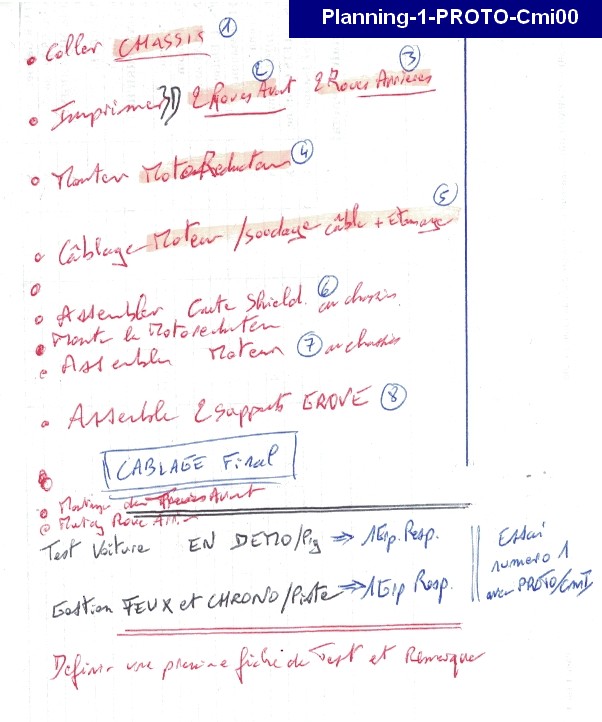 Planning-1-PROTO-Cmi00
• Coller CHASSIS ①
② ③
• Imprimer 3D 2 Roues Avant 2 Roues Arrières
• Monter MotoReducteur ④
⑤
• Câblage Moteur / Soudage câble + Etamage
• Assembler Carte Shield ⑥ au chassis
• Monter le Motoreducteur
• Assembler Moteur ⑦ au chassis
• Assemble 2 supports GROVE ⑧
CABLAGE Final
• Montage des Roues Avant
• Montag Roue Arr.
Test Voiture EN DEMO/Pig => 1Grp. Resp.
Essai
numero 1
avec PROTO/CmI
Gestion FEUX et CHRONO/Piste => 1Grp Resp.
Definir une premiere fiche de Test et Remarque